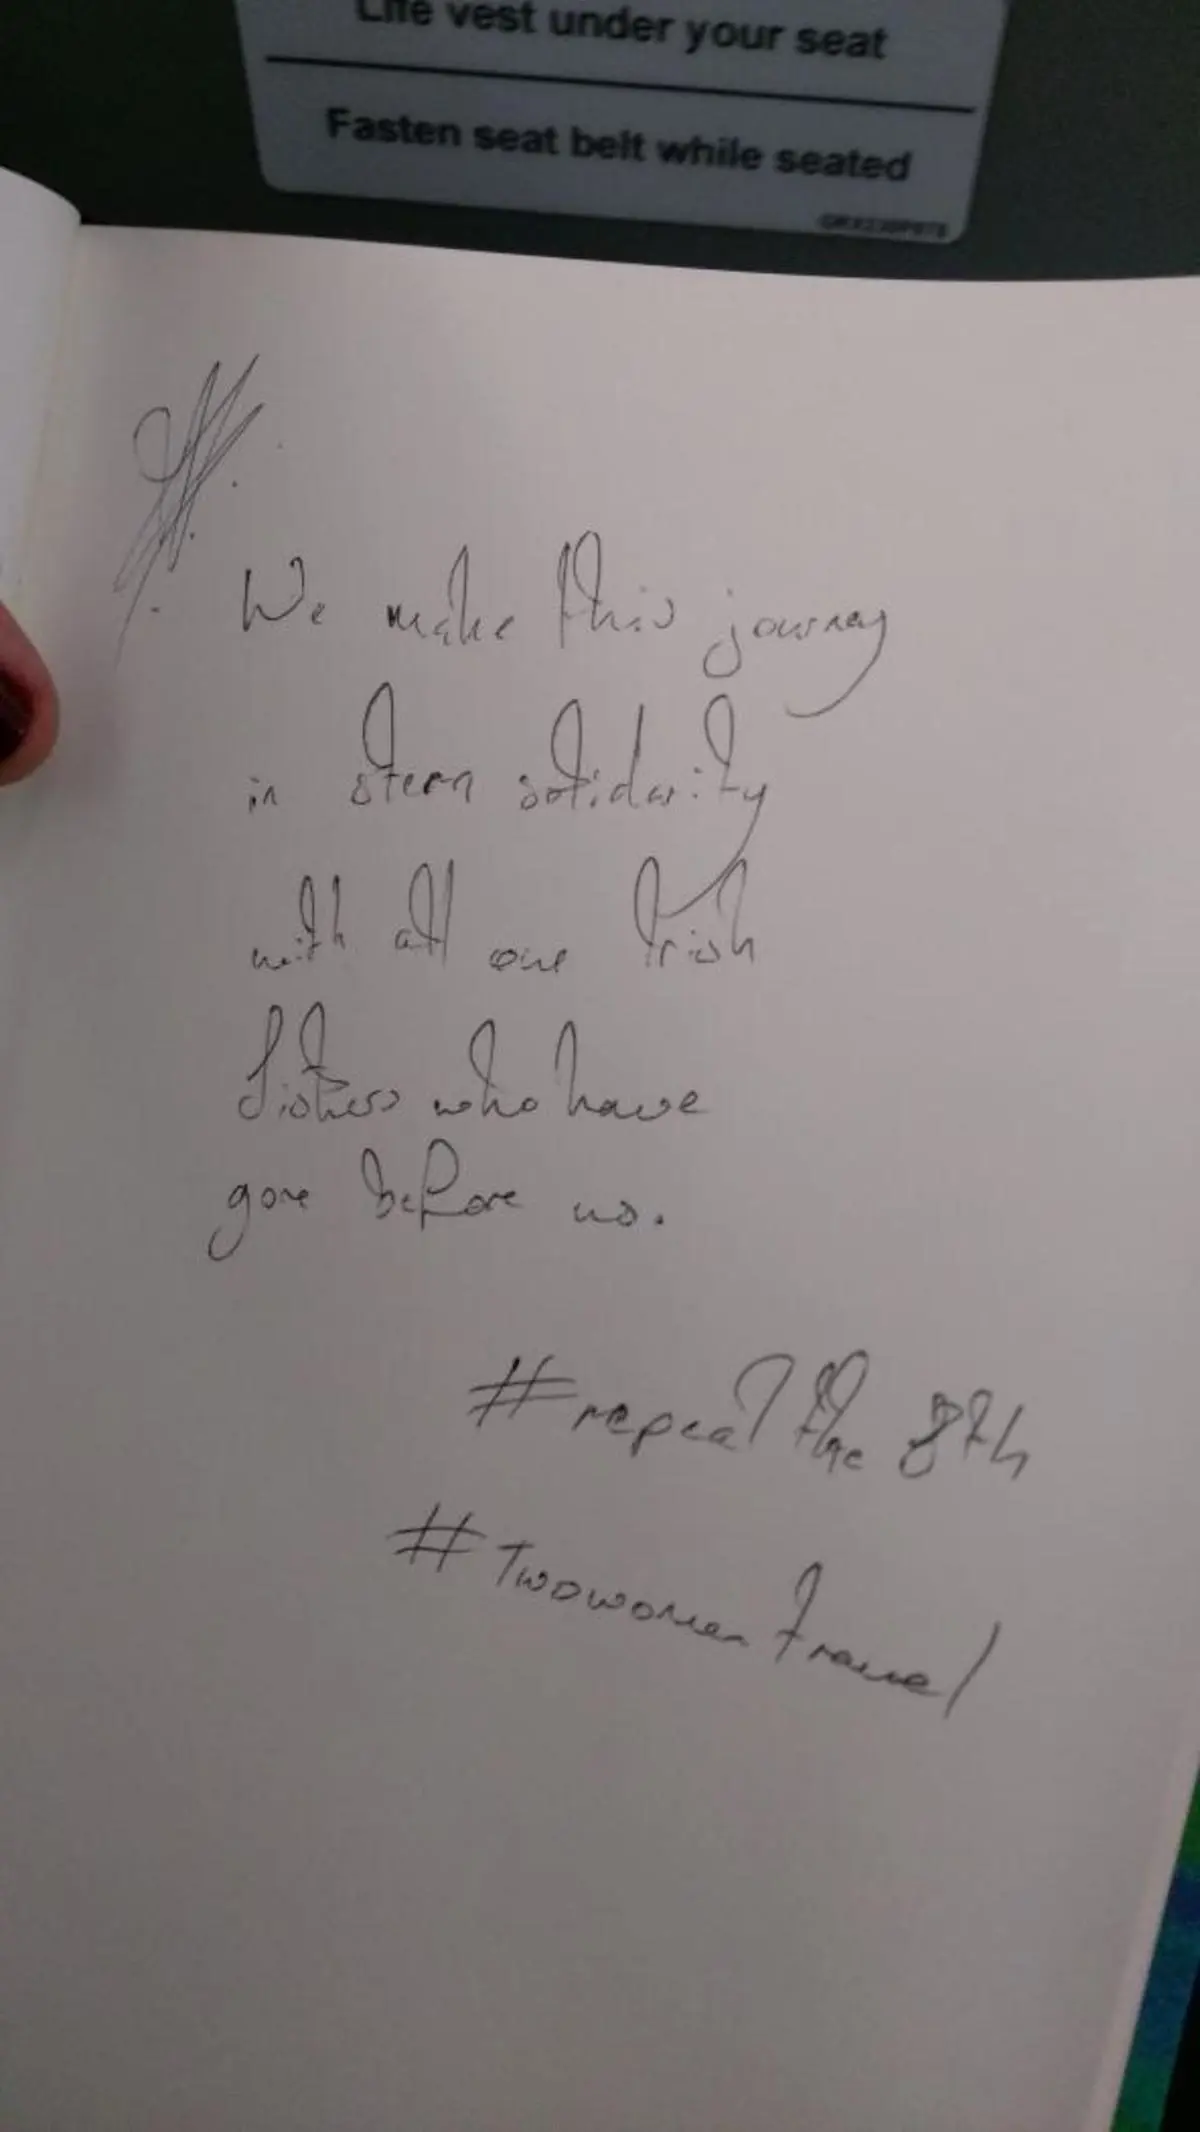 Life vest under your seat
Fasten seat belt while seated
We make this journey
in stern solidarity
with all our Irish
Sisters who have
gone before us.
#repeal the 8th
#Twowomentravel